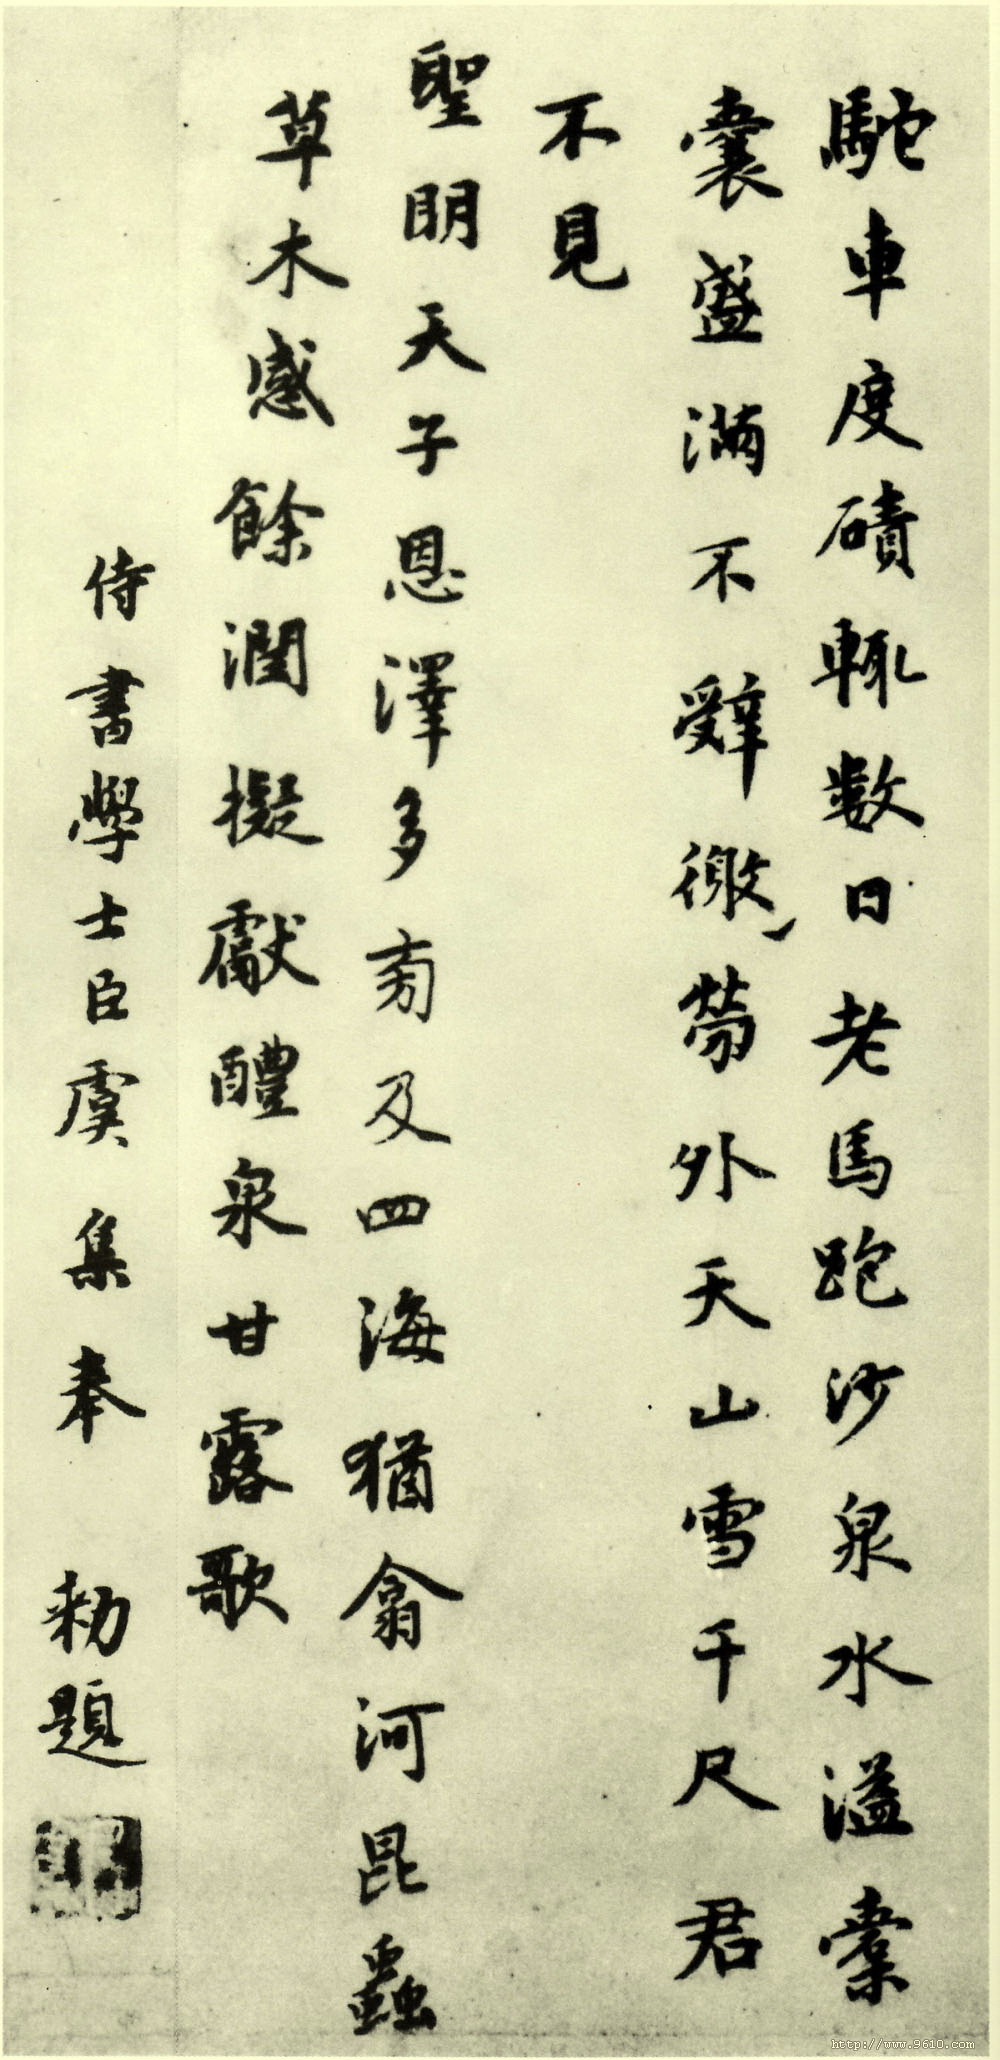 駝車度磧輒數日老馬跑沙泉水溢橐
囊盛滿不辭徼勞外天山雪千尺君
不見
聖明天子恩澤多旁及四海猶翕河昆蟲
草木感餘潤擬獻醴泉甘露歌
侍書學士臣虞集奉 勑題
http://www.9610.com